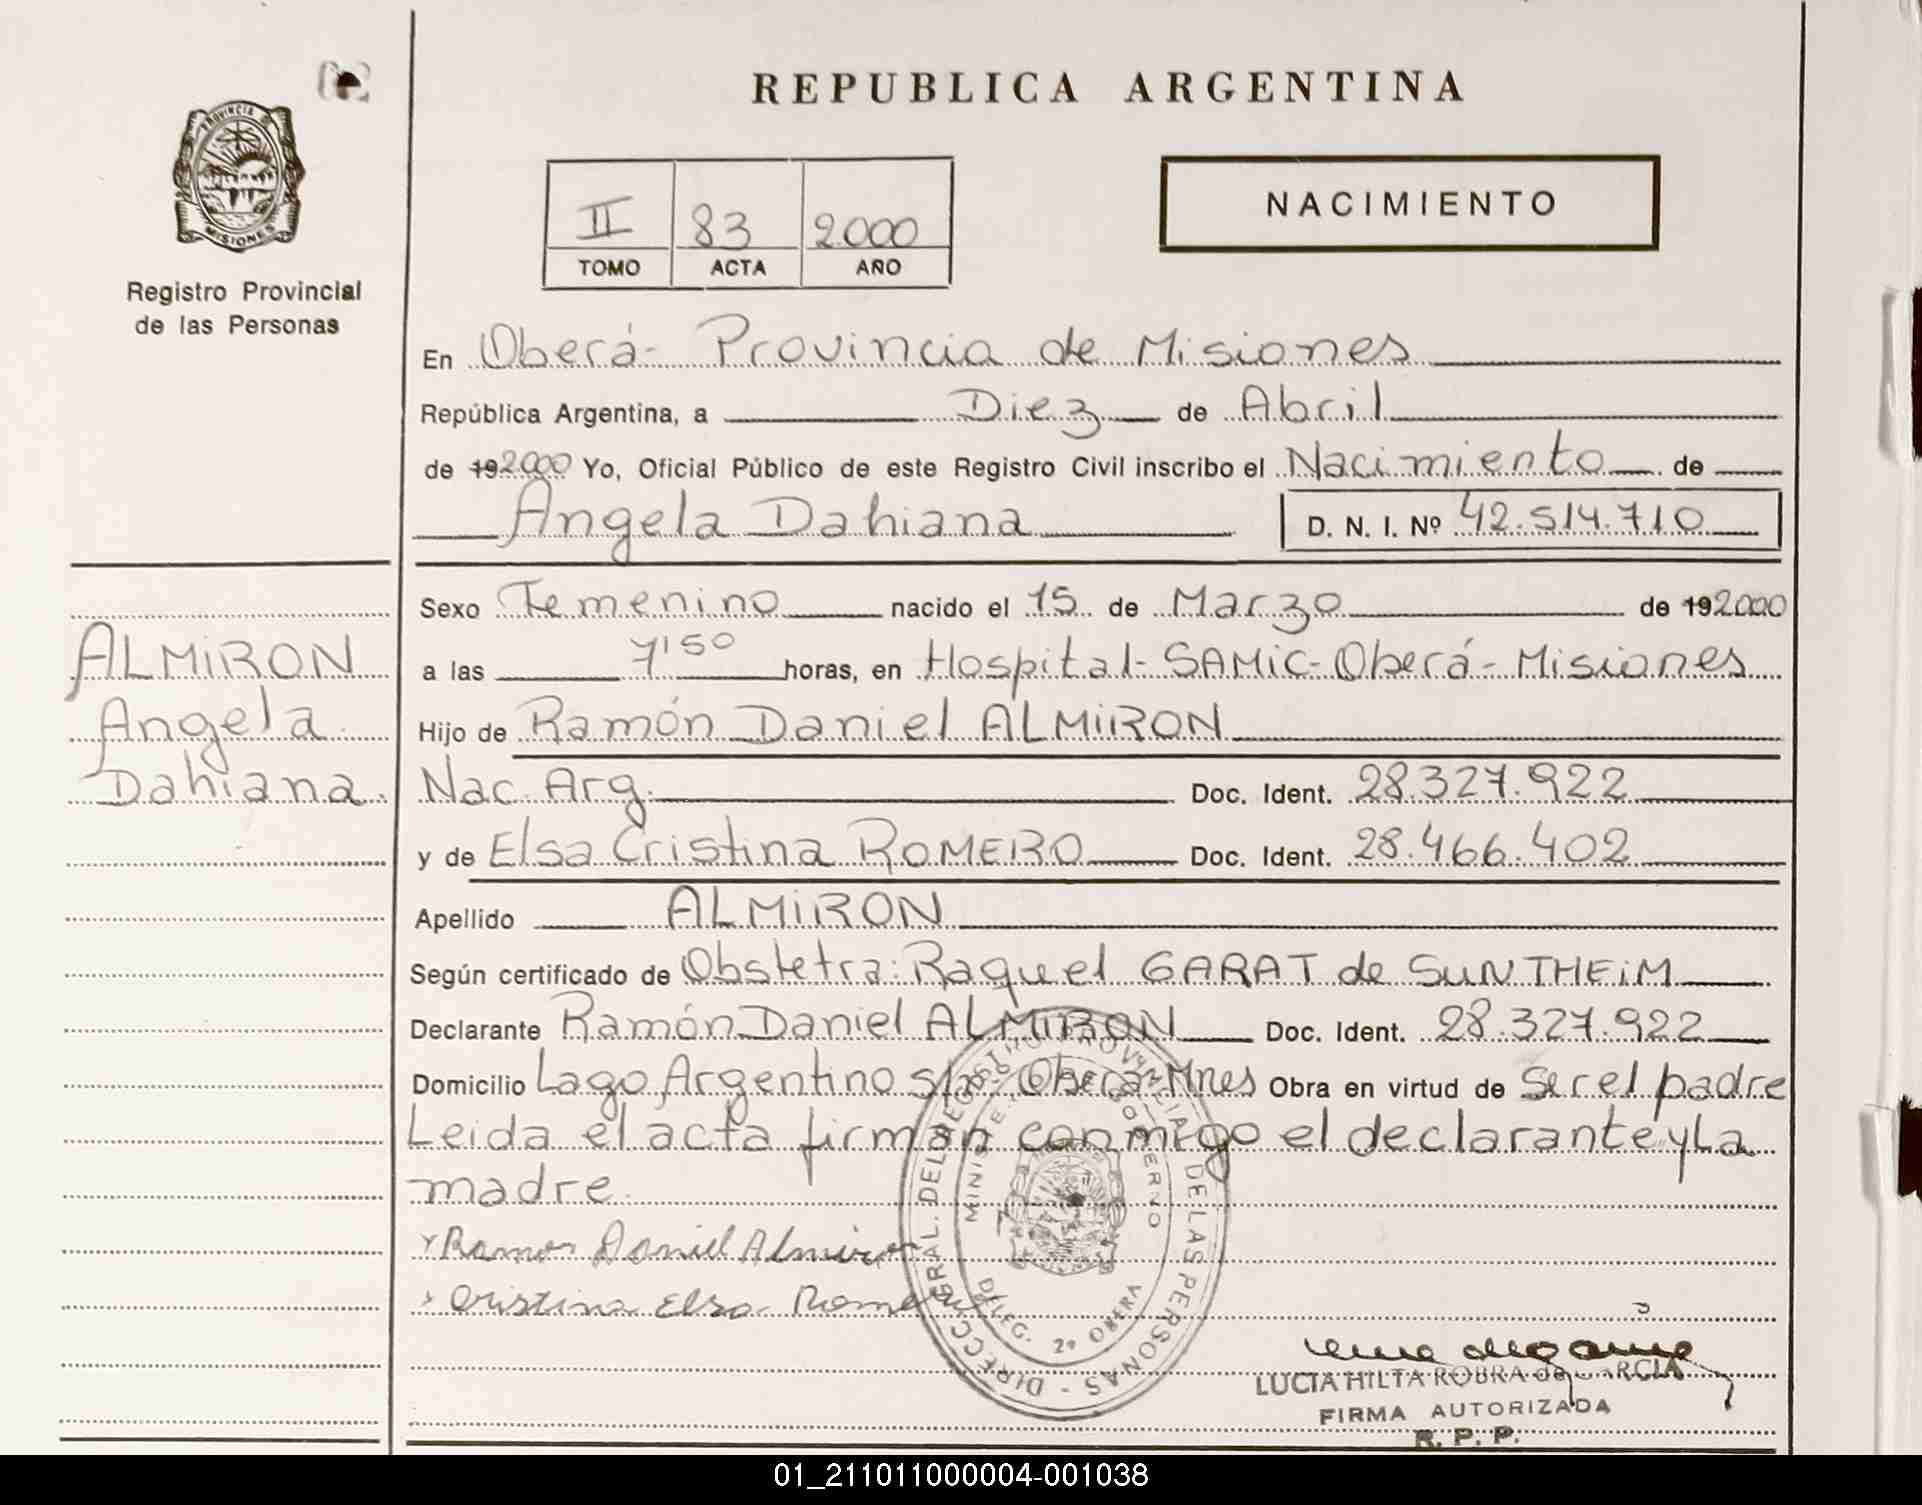 REPUBLICA ARGENTINA
PROVINCIA DE
MISIONES
Registro Provincial
de las Personas
II 83 2000
TOMO ACTA AÑO
NACIMIENTO
En Oberá- Provincia de Misiones
República Argentina, a Diez de Abril
de 192000 Yo, Oficial Público de este Registro Civil inscribo el Nacimiento de
Angela Dahiana D. N. I. Nº 42.514.710
Sexo Femenino nacido el 15 de Marzo de 192000
a las 7'50 horas, en Hospital-SAMIC-Oberá-Misiones
Hijo de Ramón Daniel ALMIRON
Nac. Arg. Doc. Ident. 28.327.922
y de Elsa Cristina ROMERO Doc. Ident. 28.466.402
Apellido ALMIRON
Según certificado de Obstetra: Raquel GARAT de SUNTHEIM
Declarante Ramón Daniel ALMIRON Doc. Ident. 28.327.922
Domicilio Lago Argentino s/nº Oberá-Mnes Obra en virtud de Ser el padre
Leida el acta firman conmigo el declarante y La
madre.
Ramon Daniel Almiron
Cristina Elsa Romero
ALMIRON
Angela
Dahiana.
DIRECC. GRAL. DEL REGISTRO PROVINCIAL DE LAS PERSONAS
DELEG. 2º OBERA
LUCIA HILTA ROBRA de GARCIA
FIRMA AUTORIZADA
R. P. P.
01_211011000004-001038